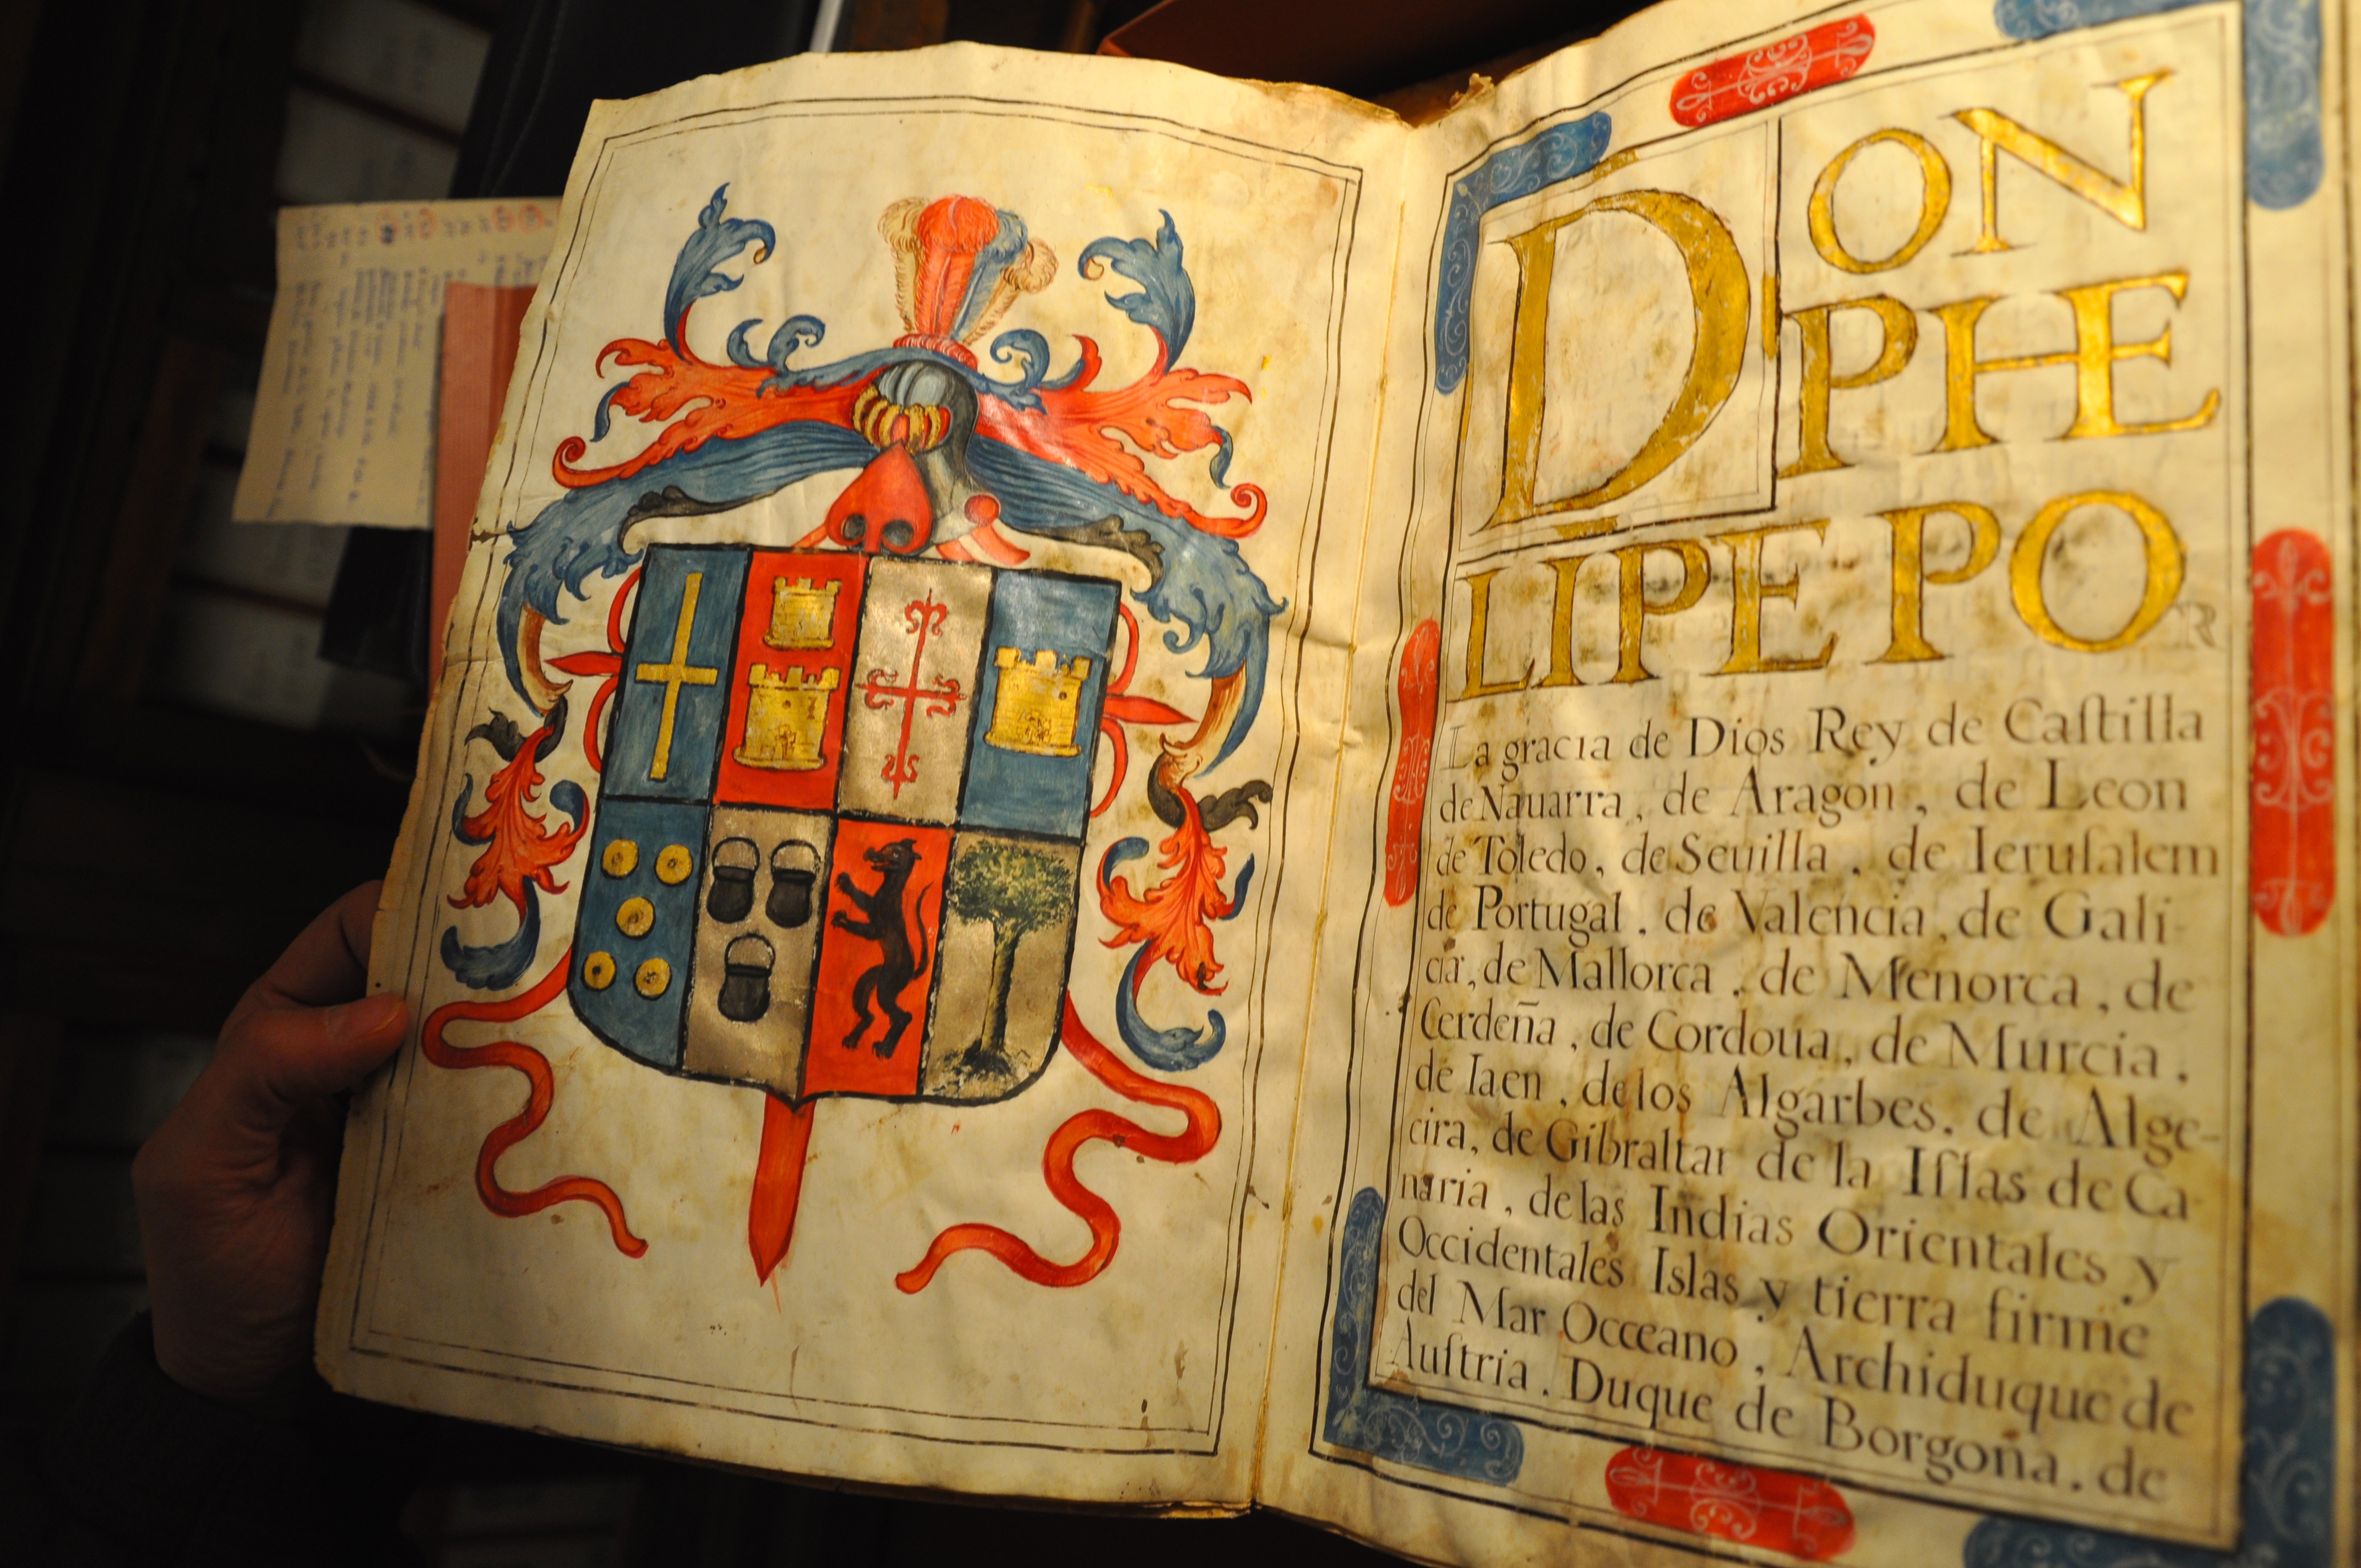 DON
PHE
LIPE PO
R
La gracia de Dios Rey de Caſtilla
de Nauarra, de Aragon, de Leon
de Toledo, de Seuilla, de Ieruſalem
de Portugal, de Valencia, de Gali-
cia, de Mallorca, de Menorca, de
Cerdeña, de Cordoua, de Murcia,
de Iaen, de los Algarbes, de Alge-
cira, de Gibraltar de la Iſlas de Ca-
naria, de las Indias Orientales y
Occidentales Islas y tierra firme
del Mar Occeano, Archiduque de
Auſtria, Duque de Borgoña, de